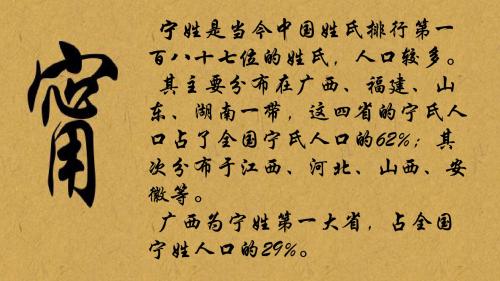 甯
宁姓是当今中国姓氏排行第一
百八十七位的姓氏，人口较多。
其主要分布在广西、福建、山
东、湖南一带，这四省的宁氏人
口占了全国宁氏人口的62%；其
次分布于江西、河北、山西、安
徽等。
广西为宁姓第一大省，占全国
宁姓人口的29%。